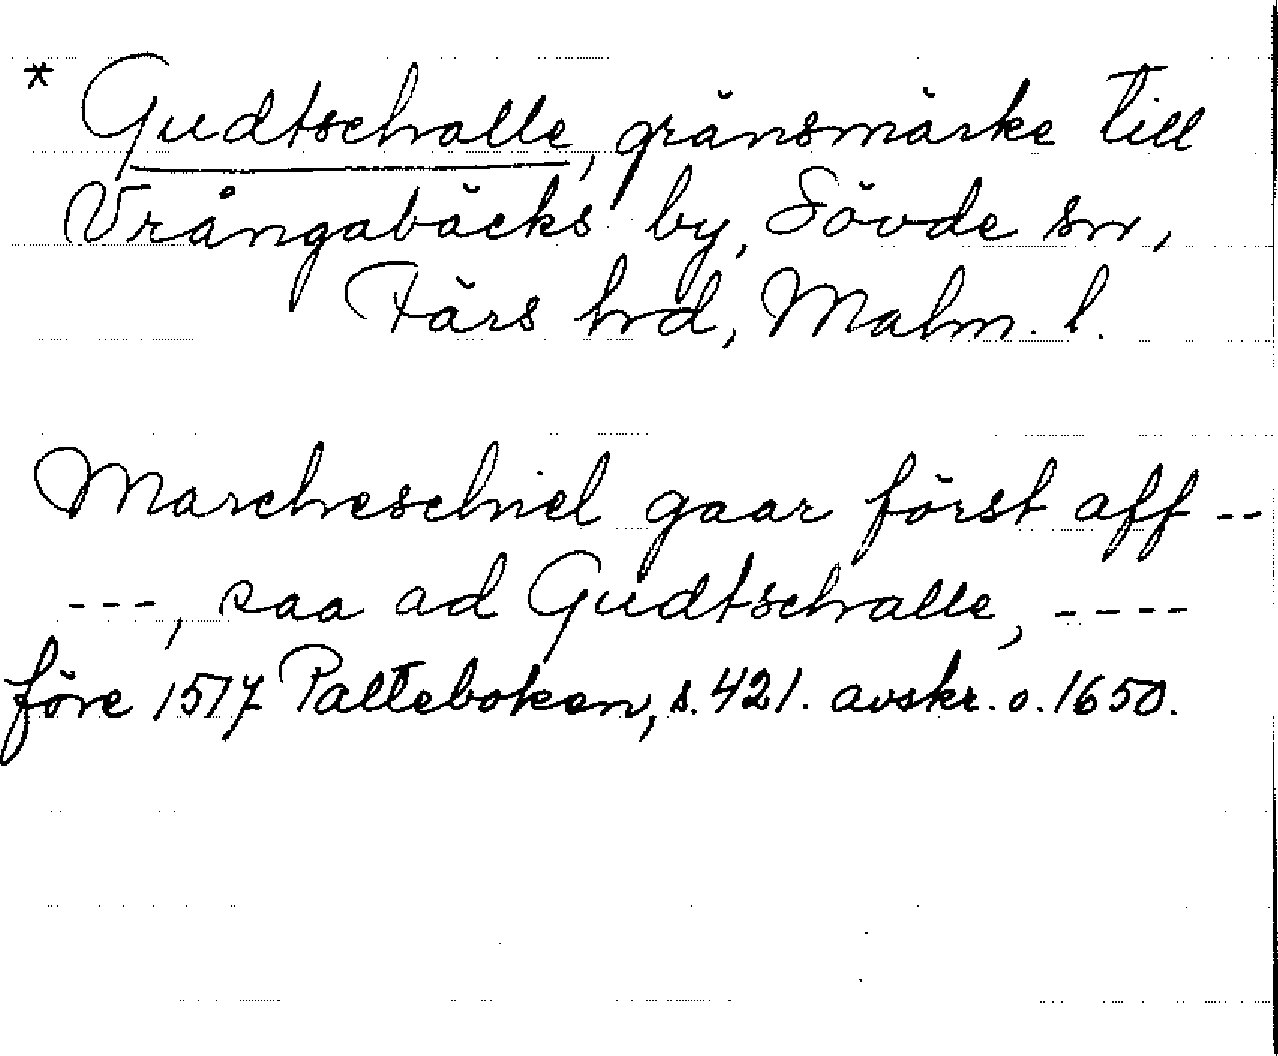 * Gudtschalle, gränsmärke till
Vrångabäcks by, Sövde sn,
Färs hrd, Malm. l.
Marcheschiel gaar först aff --
---, saa ad Gudtschalle, ----
före 1517 Palteboken, s. 421. avskr. o. 1650.